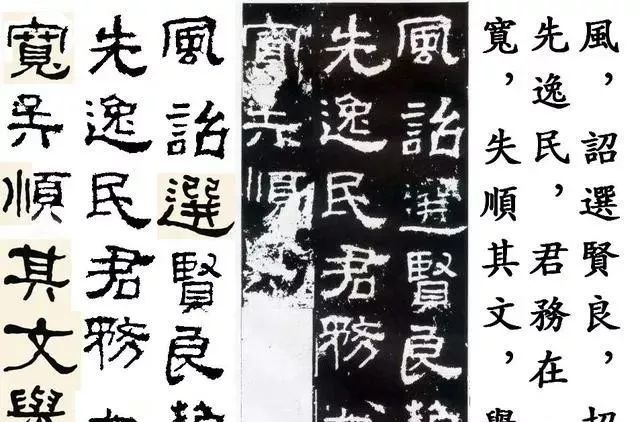 風，詔選賢良，
先逸民，君務在
寬，失順其文，
風詔選賢良
先逸民君務
寬失順
風詔選賢良
先逸民君務
寬失順其文